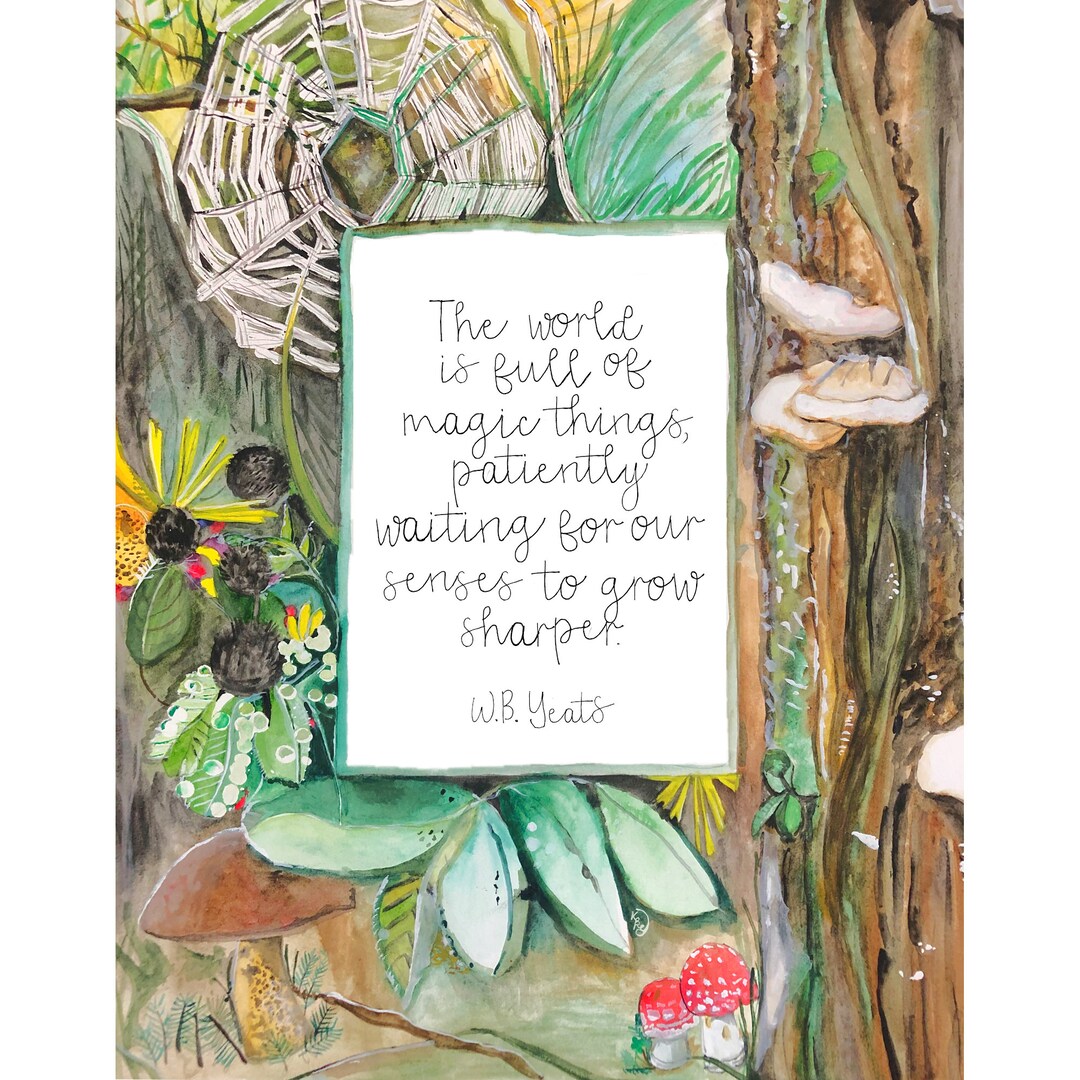 The world
is full of
magic things,
patiently
waiting for our
senses to grow
sharper.
W.B. Yeats